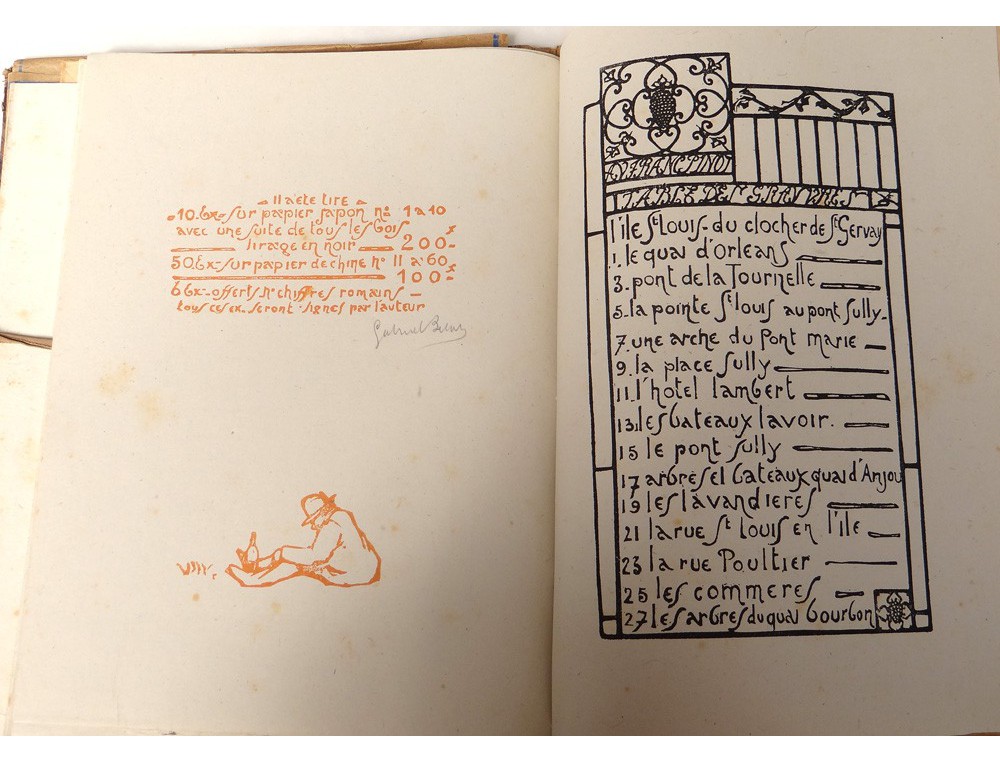 Il a ete tire
10.Ex- sur papier japon nº 1 a 10
avec une suite de tous les bois
tirage en noir 200-
50.Ex- sur papier de chine nº 11 a 60
100-
6 Ex- offerts nº chiffres romains
tous ces ex. seront signes par l'auteur
Gabriel Belot
AU FRANC PINOT
TABLE DES GRAVURES
l'ile St Louis - du clocher de St Gervay
1. le quai d'Orleans
3. pont de la Tournelle
5. la pointe St louis au pont Sully-
7. une arche du Pont marie
9. la place Sully
11. l'hotel lambert
13. les bateaux lavoir.
15 le pont Sully
17 arbres et bateaux quai d'Anjou
19 les lavandieres
21 la rue St Louis en l'ile
23 la rue Poultier
25 les commeres
27 les arbres du quai bourbon